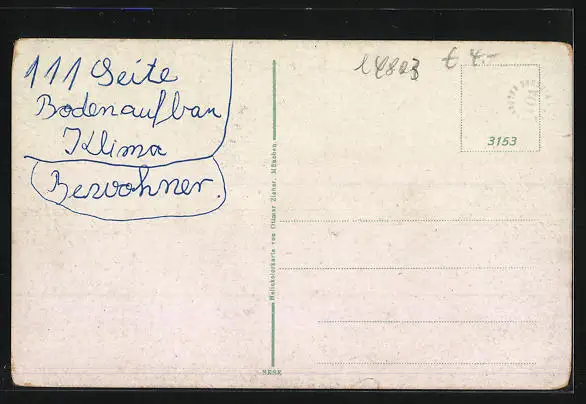 111 Seite
Bodenaufbau
Klima
Bewohner.
14803 € 4.-
3153
Heliokolorkarte von Ottmar Zieher, München
SESK